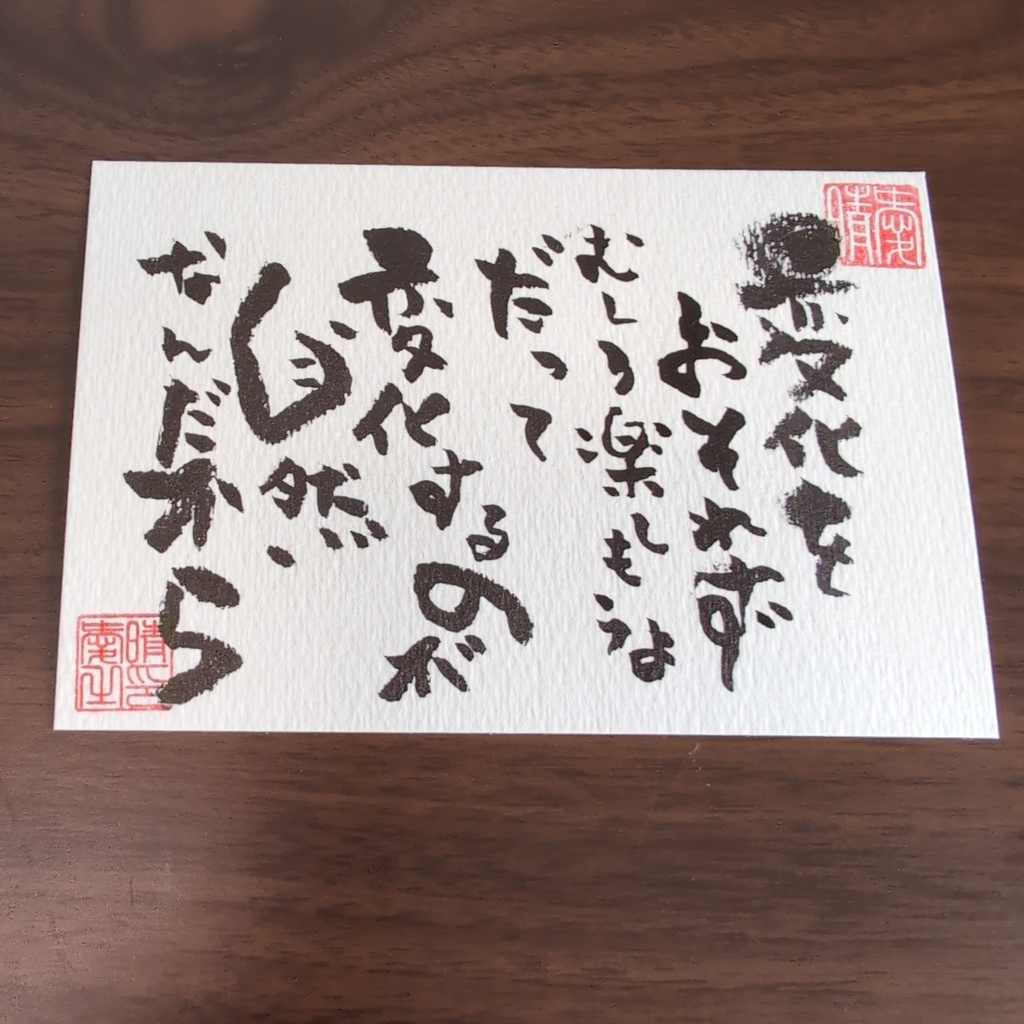 変化を
おそれず
むしろ楽しもうよ
だって
変化するのが
自然、
なんだから